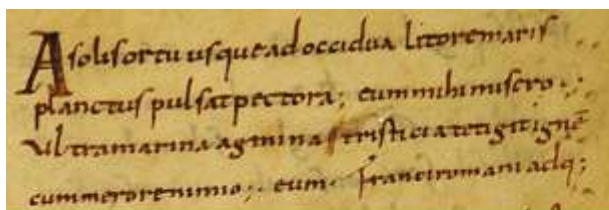 A solis ortu usque ad occidua litore maris
planctus pulsat pectora; eummihi misero;
Ultramarina agmina tristicia tetigit ingẽ
cum merore nimio; eum. Franci romani adq;